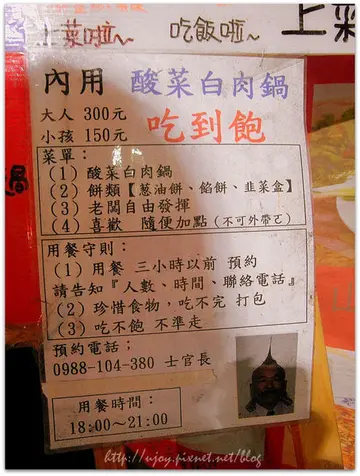 上菜啦~ 吃飯啦~ 上菜
內用 酸菜白肉鍋
大人 300元
小孩 150元
吃到飽
菜單：
(1) 酸菜白肉鍋
(2) 餅類【蔥油餅、餡餅、韭菜盒】
(3) 老闆自由發揮
(4) 喜歡 隨便加點(不可外帶ㄛ)
用餐守則：
(1) 用餐 三小時以前 預約
請告知『人數、時間、聯絡電話』
(2) 珍惜食物，吃不完 打包
(3) 吃不飽 不準走
預約電話；
0988-104-380 士官長
用餐時間：
18:00～21:00
http://ujoy.pixnet.net/blog